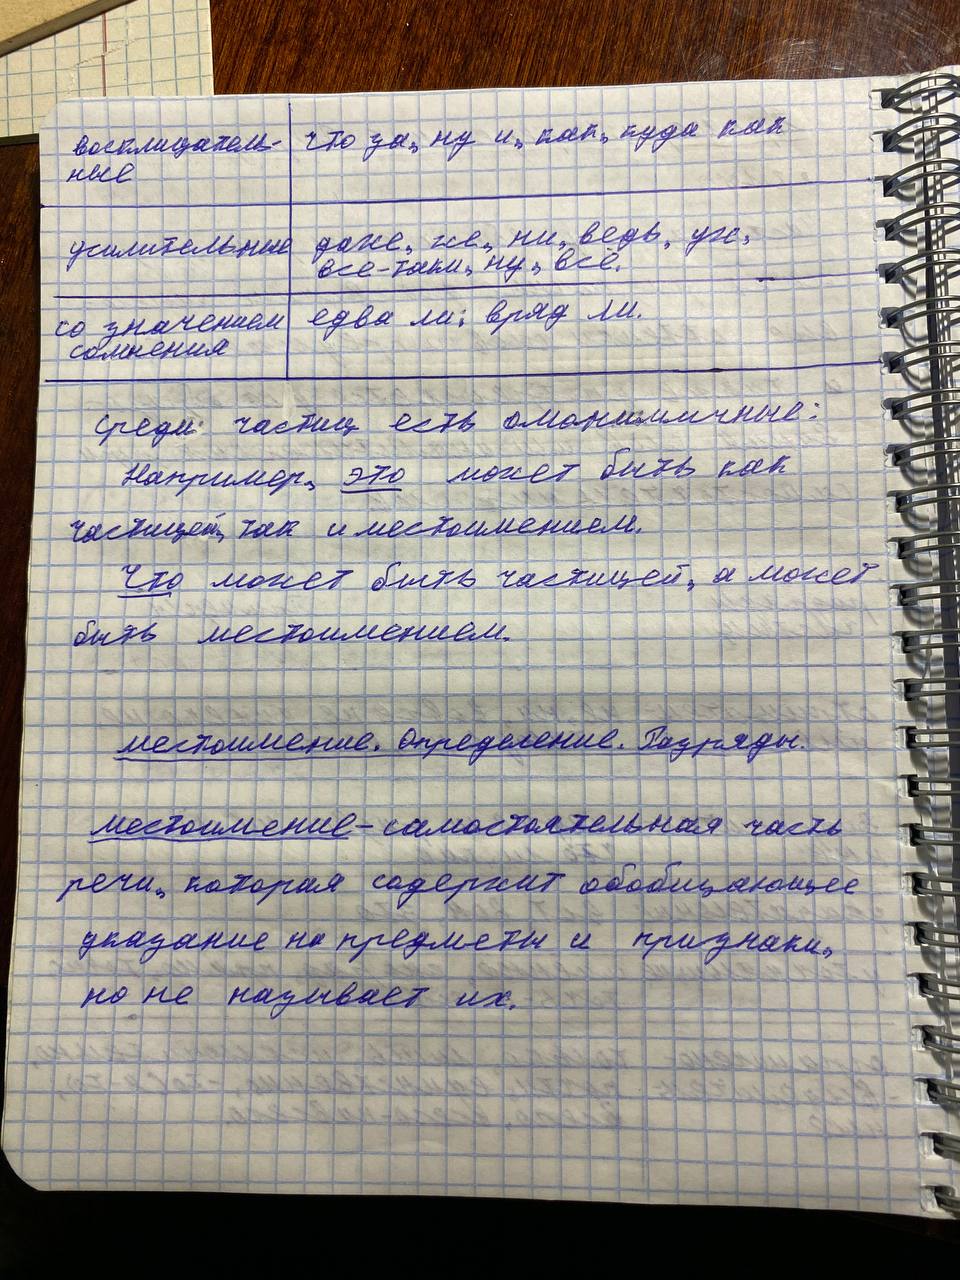 восклицатель- что за, ну и, как, куда как
ные
усилительные даже, же, ни, ведь, уж,
все-таки, ну, всё.
со значением едва ли; вряд ли.
сомнения
Среди частиц есть омонимичные:
Например, это может быть как
частицей, так и местоимением.
Что может быть частицей, а может
быть местоимением.
Местоимение. Определение. Разряды.
Местоимение - самостоятельная часть
речи, которая содержит обобщающее
указание на предметы и признаки,
но не называет их.